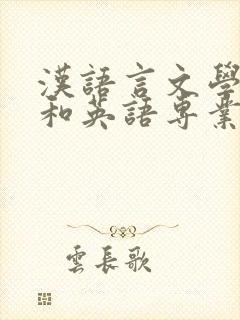 漢語言文學
和英語專業
雲長歌